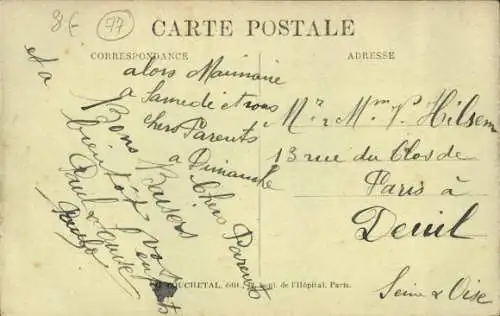 8€
77
CARTE POSTALE
CORRESPONDANCE
ADRESSE
alors Mamaine
a Samedi et vous
chers Parents
a Dimanche
chers Parents
et a
bientôt vos enfants
Bons Baisers
Paul & Louise
Mr & Mme P. Hilsem
13 rue du Clos de
Paris à
Deuil
Seine & Oise
édit., de l'Hôpital, Paris.